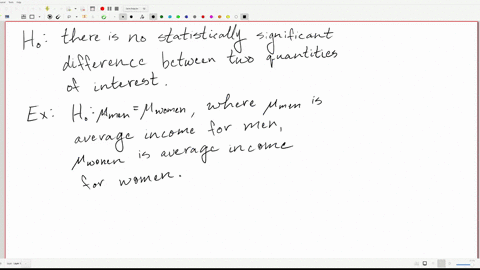 H₀: there is no statistically significant
difference between two quantities
of interest.
Ex: H₀: μmen = μwomen, where μmen is
average income for men,
μwomen is average income
for women.